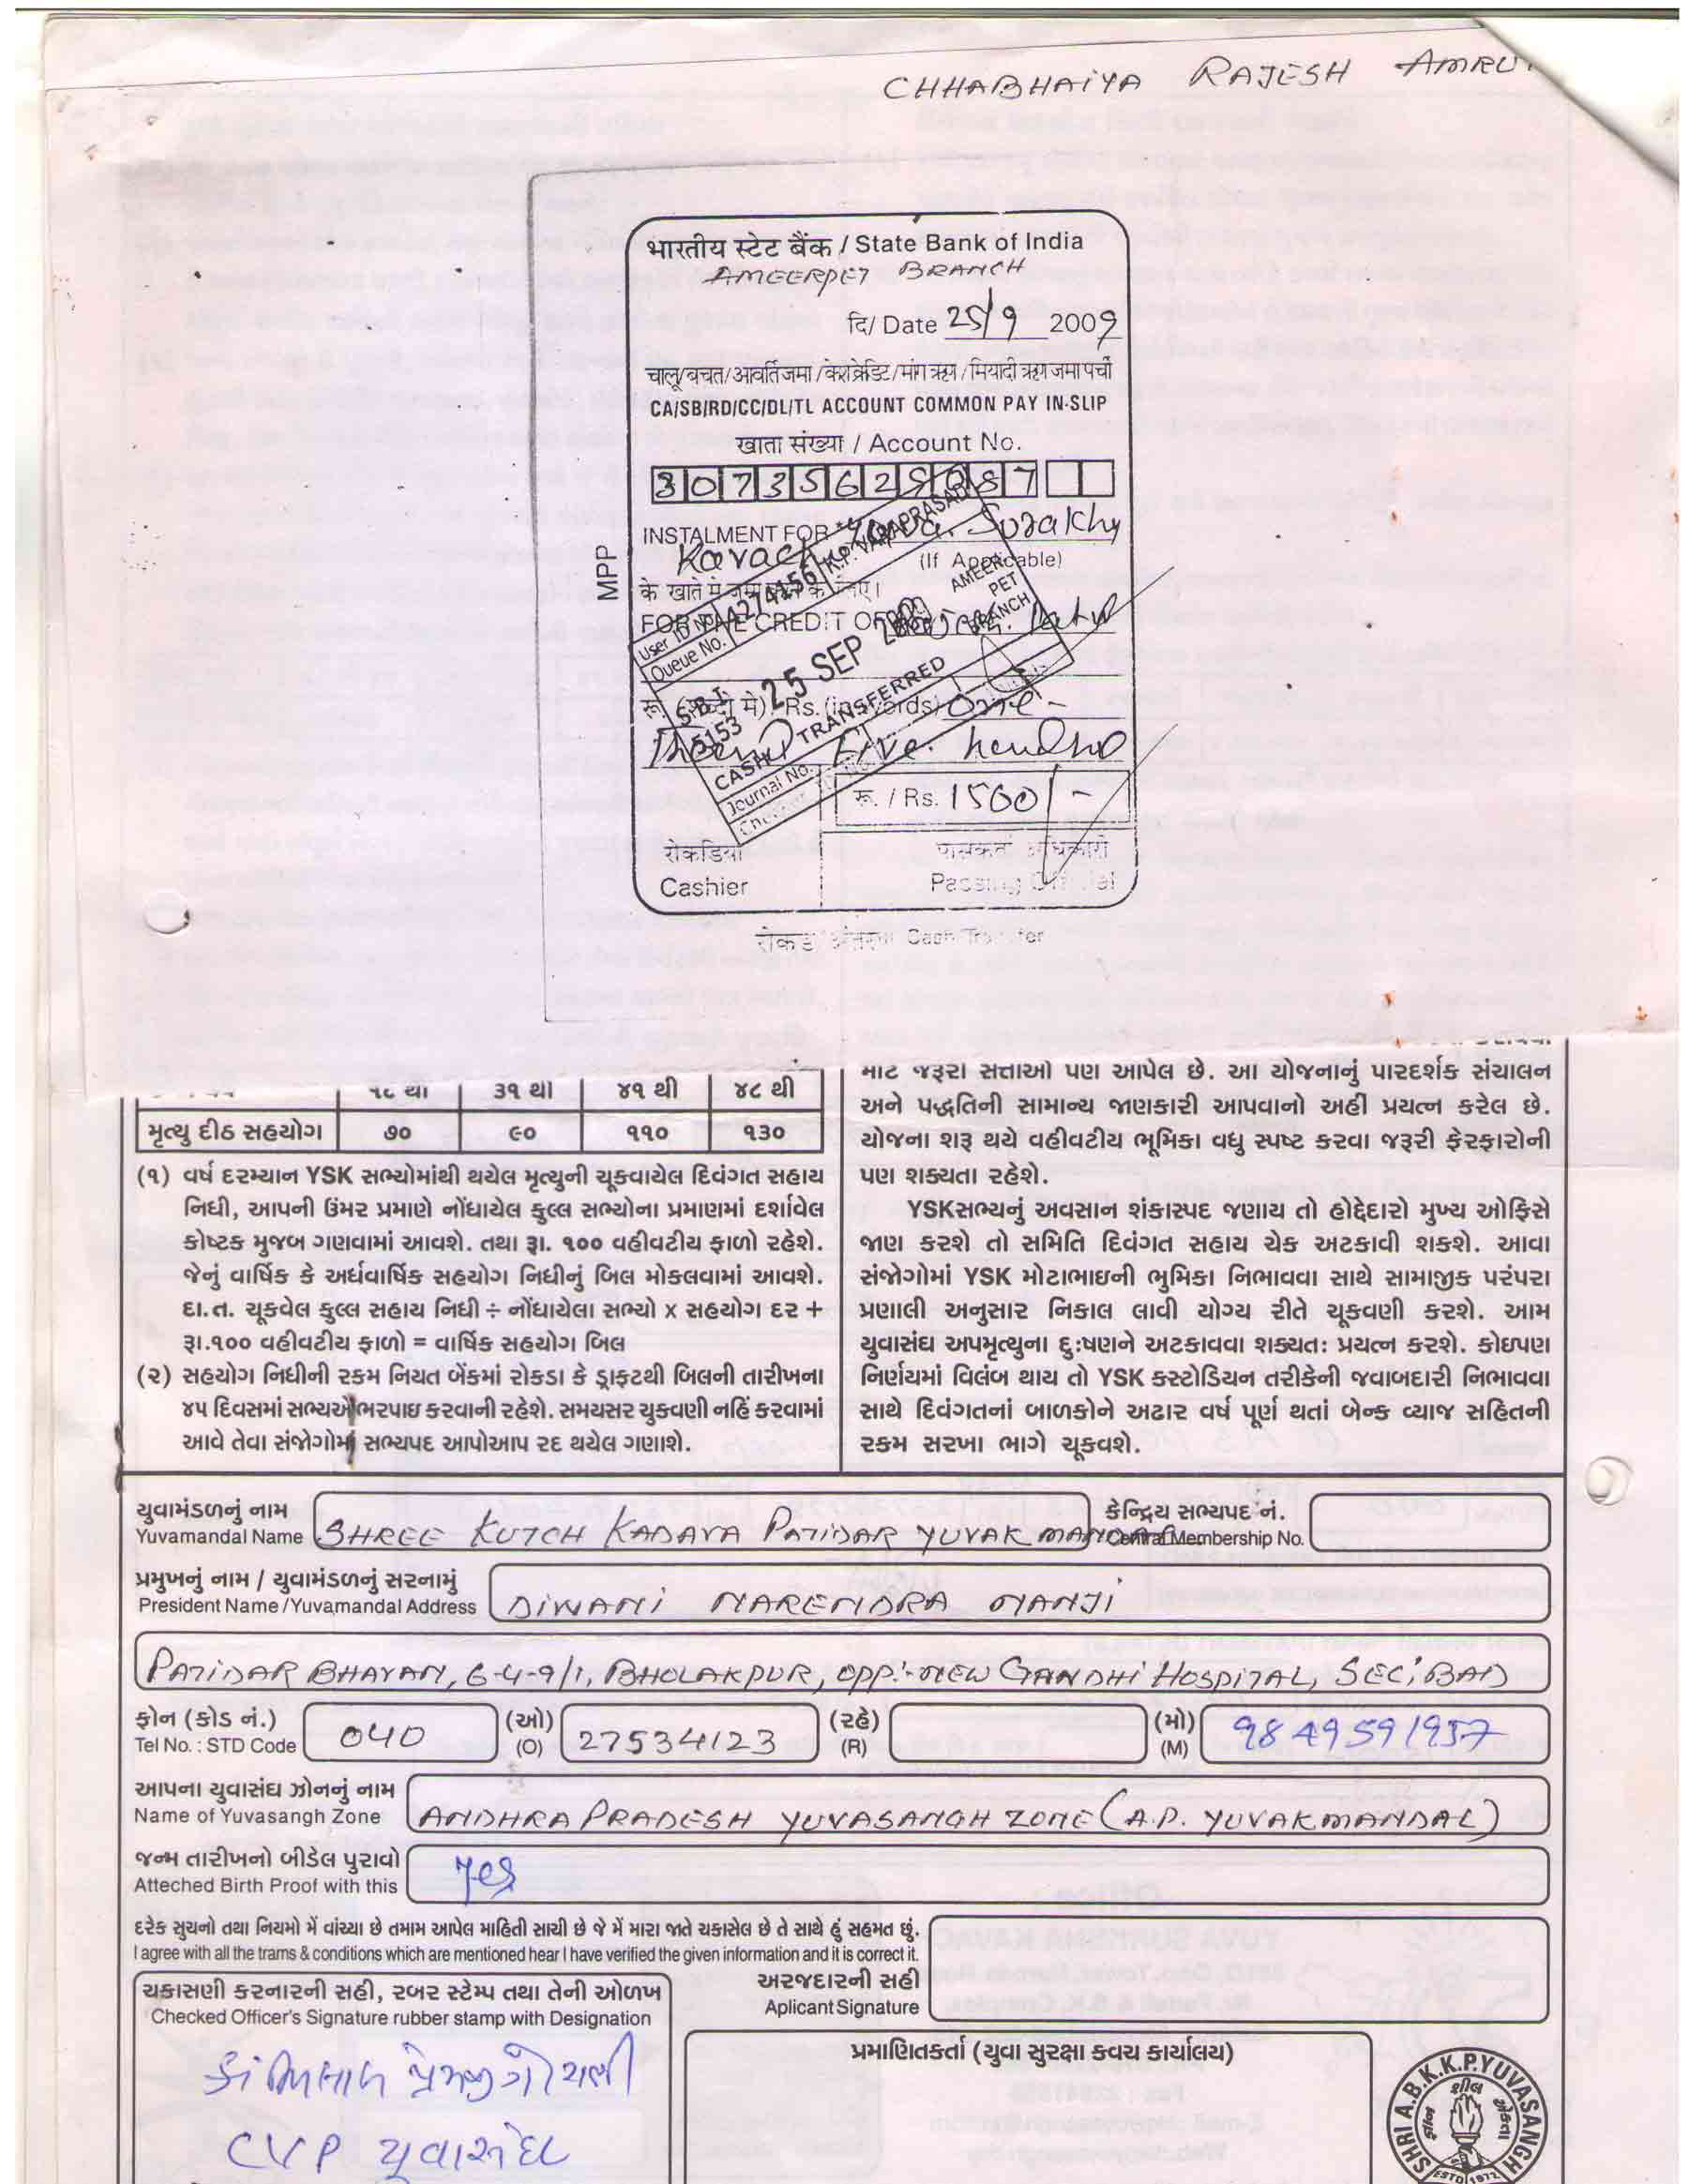 CHHABHAIYA RAJESH AMRU
भारतीय स्टेट बैंक / State Bank of India
AMEERPET BRANCH
दि/ Date 25/9 2009
चालू/बचत/आवर्तिजमा/केशक्रेडिट/मांग ऋण/मियादी ऋण जमा पर्ची
CA/SB/RD/CC/DL/TL ACCOUNT COMMON PAY IN-SLIP
खाता संख्या / Account No.
INSTALMENT FOR
MPP
Kavach
(If Applicable)
के खाते में जमा
FOR THE CREDIT OF
User ID No. 4274156 K.P. VARAPRASAD
Queue No.
AMEER
PET
BRANCH
S.B.I. 25 SEP
5153
CASH TRANSFERRED
Journal No.
Rs. (in words) One -
Five hundred
रू. / Rs. 1500/-
रोकडिया
Cashier
पासकर्ता अधिकारी
Passing Official
रोकड Cash Transfer
૩૧ થી ૪૧ થી ૪૮ થી
મૃત્યુ દીઠ સહયોગ ૭૦ ૯૦ ૧૧૦ ૧૩૦
(૧) વર્ષ દરમ્યાન YSK સભ્યોમાંથી થયેલ મૃત્યુની ચૂકવાયેલ દિવંગત સહાય
નિધી, આપની ઉંમર પ્રમાણે નોંધાયેલ કુલ્લ સભ્યોના પ્રમાણમાં દર્શાવેલ
કોષ્ટક મુજબ ગણવામાં આવશે. તથા રૂા. ૧૦૦ વહીવટીય ફાળો રહેશે.
જેનું વાર્ષિક કે અર્ધવાર્ષિક સહયોગ નિધીનું બિલ મોકલવામાં આવશે.
દા.ત. ચૂકવેલ કુલ્લ સહાય નિધી ÷ નોંધાયેલા સભ્યો x સહયોગ દર +
રૂા.૧૦૦ વહીવટીય ફાળો = વાર્ષિક સહયોગ બિલ
(૨) સહયોગ નિધીની રકમ નિયત બેંકમાં રોકડા કે ડ્રાફટથી બિલની તારીખના
૪૫ દિવસમાં સભ્યએ ભરપાઇ કરવાની રહેશે. સમયસર ચુકવણી નહિં કરવામાં
આવે તેવા સંજોગોમાં સભ્યપદ આપોઆપ રદ થયેલ ગણાશે.
માટે જરૂરી સત્તાઓ પણ આપેલ છે. આ યોજનાનું પારદર્શક સંચાલન
અને પદ્ધતિની સામાન્ય જાણકારી આપવાનો અહીં પ્રયત્ન કરેલ છે.
યોજના શરૂ થયે વહીવટીય ભૂમિકા વધુ સ્પષ્ટ કરવા જરૂરી ફેરફારોની
પણ શક્યતા રહેશે.
YSKસભ્યનું અવસાન શંકાસ્પદ જણાય તો હોદ્દેદારો મુખ્ય ઓફિસે
જાણ કરશે તો સમિતિ દિવંગત સહાય ચેક અટકાવી શકશે. આવા
સંજોગોમાં YSK મોટાભાઇની ભુમિકા નિભાવવા સાથે સામાજીક પરંપરા
પ્રણાલી અનુસાર નિકાલ લાવી યોગ્ય રીતે ચૂકવણી કરશે. આમ
યુવાસંઘ અપમૃત્યુના દુઃષણને અટકાવવા શક્યતઃ પ્રયત્ન કરશે. કોઇપણ
નિર્ણયમાં વિલંબ થાય તો YSK કસ્ટોડિયન તરીકેની જવાબદારી નિભાવવા
સાથે દિવંગતનાં બાળકોને અઢાર વર્ષ પૂર્ણ થતાં બેન્ક વ્યાજ સહિતની
રકમ સરખા ભાગે ચૂકવશે.
યુવામંડળનું નામ
Yuvamandal Name SHREE KUTCH KADAVA PATIDAR YUVAK MANDAL
કેન્દ્રિય સભ્યપદ નં.
Central Membership No.
પ્રમુખનું નામ / યુવામંડળનું સરનામું
President Name /Yuvamandal Address DIWANI NARENDRA NANJI
PATIDAR BHAVAN, 6-4-9/1, BHOLAKPUR, OPP:- NEW GANDHI HOSPITAL, SEC'BAD
ફોન (કોડ નં.) (ઓ) (રહે) (મો)
Tel No. : STD Code 040 (O) 27534123 (R) (M) 9849591957
આપના યુવાસંઘ ઝોનનું નામ
Name of Yuvasangh Zone ANDHRA PRADESH YUVASANGH ZONE (A.P. YUVAK MANDAL)
જન્મ તારીખનો બીડેલ પુરાવો
Atteched Birth Proof with this Yes
દરેક સુચનો તથા નિયમો મેં વાંચ્યા છે તમામ આપેલ માહિતી સાચી છે જે મેં મારા જાતે ચકાસેલ છે તે સાથે હું સહમત છું.
I agree with all the trams & conditions which are mentioned hear I have verified the given information and it is correct it.
અરજદારની સહી
Aplicant Signature
ચકાસણી કરનારની સહી, રબર સ્ટેમ્પ તથા તેની ઓળખ
Checked Officer's Signature rubber stamp with Designation
CVP યુવાસંઘ
પ્રમાણિતકર્તા (યુવા સુરક્ષા કવચ કાર્યાલય)
SHRI A.B.K.K.P.YUVASANGH
શીલ
ESTD 1972